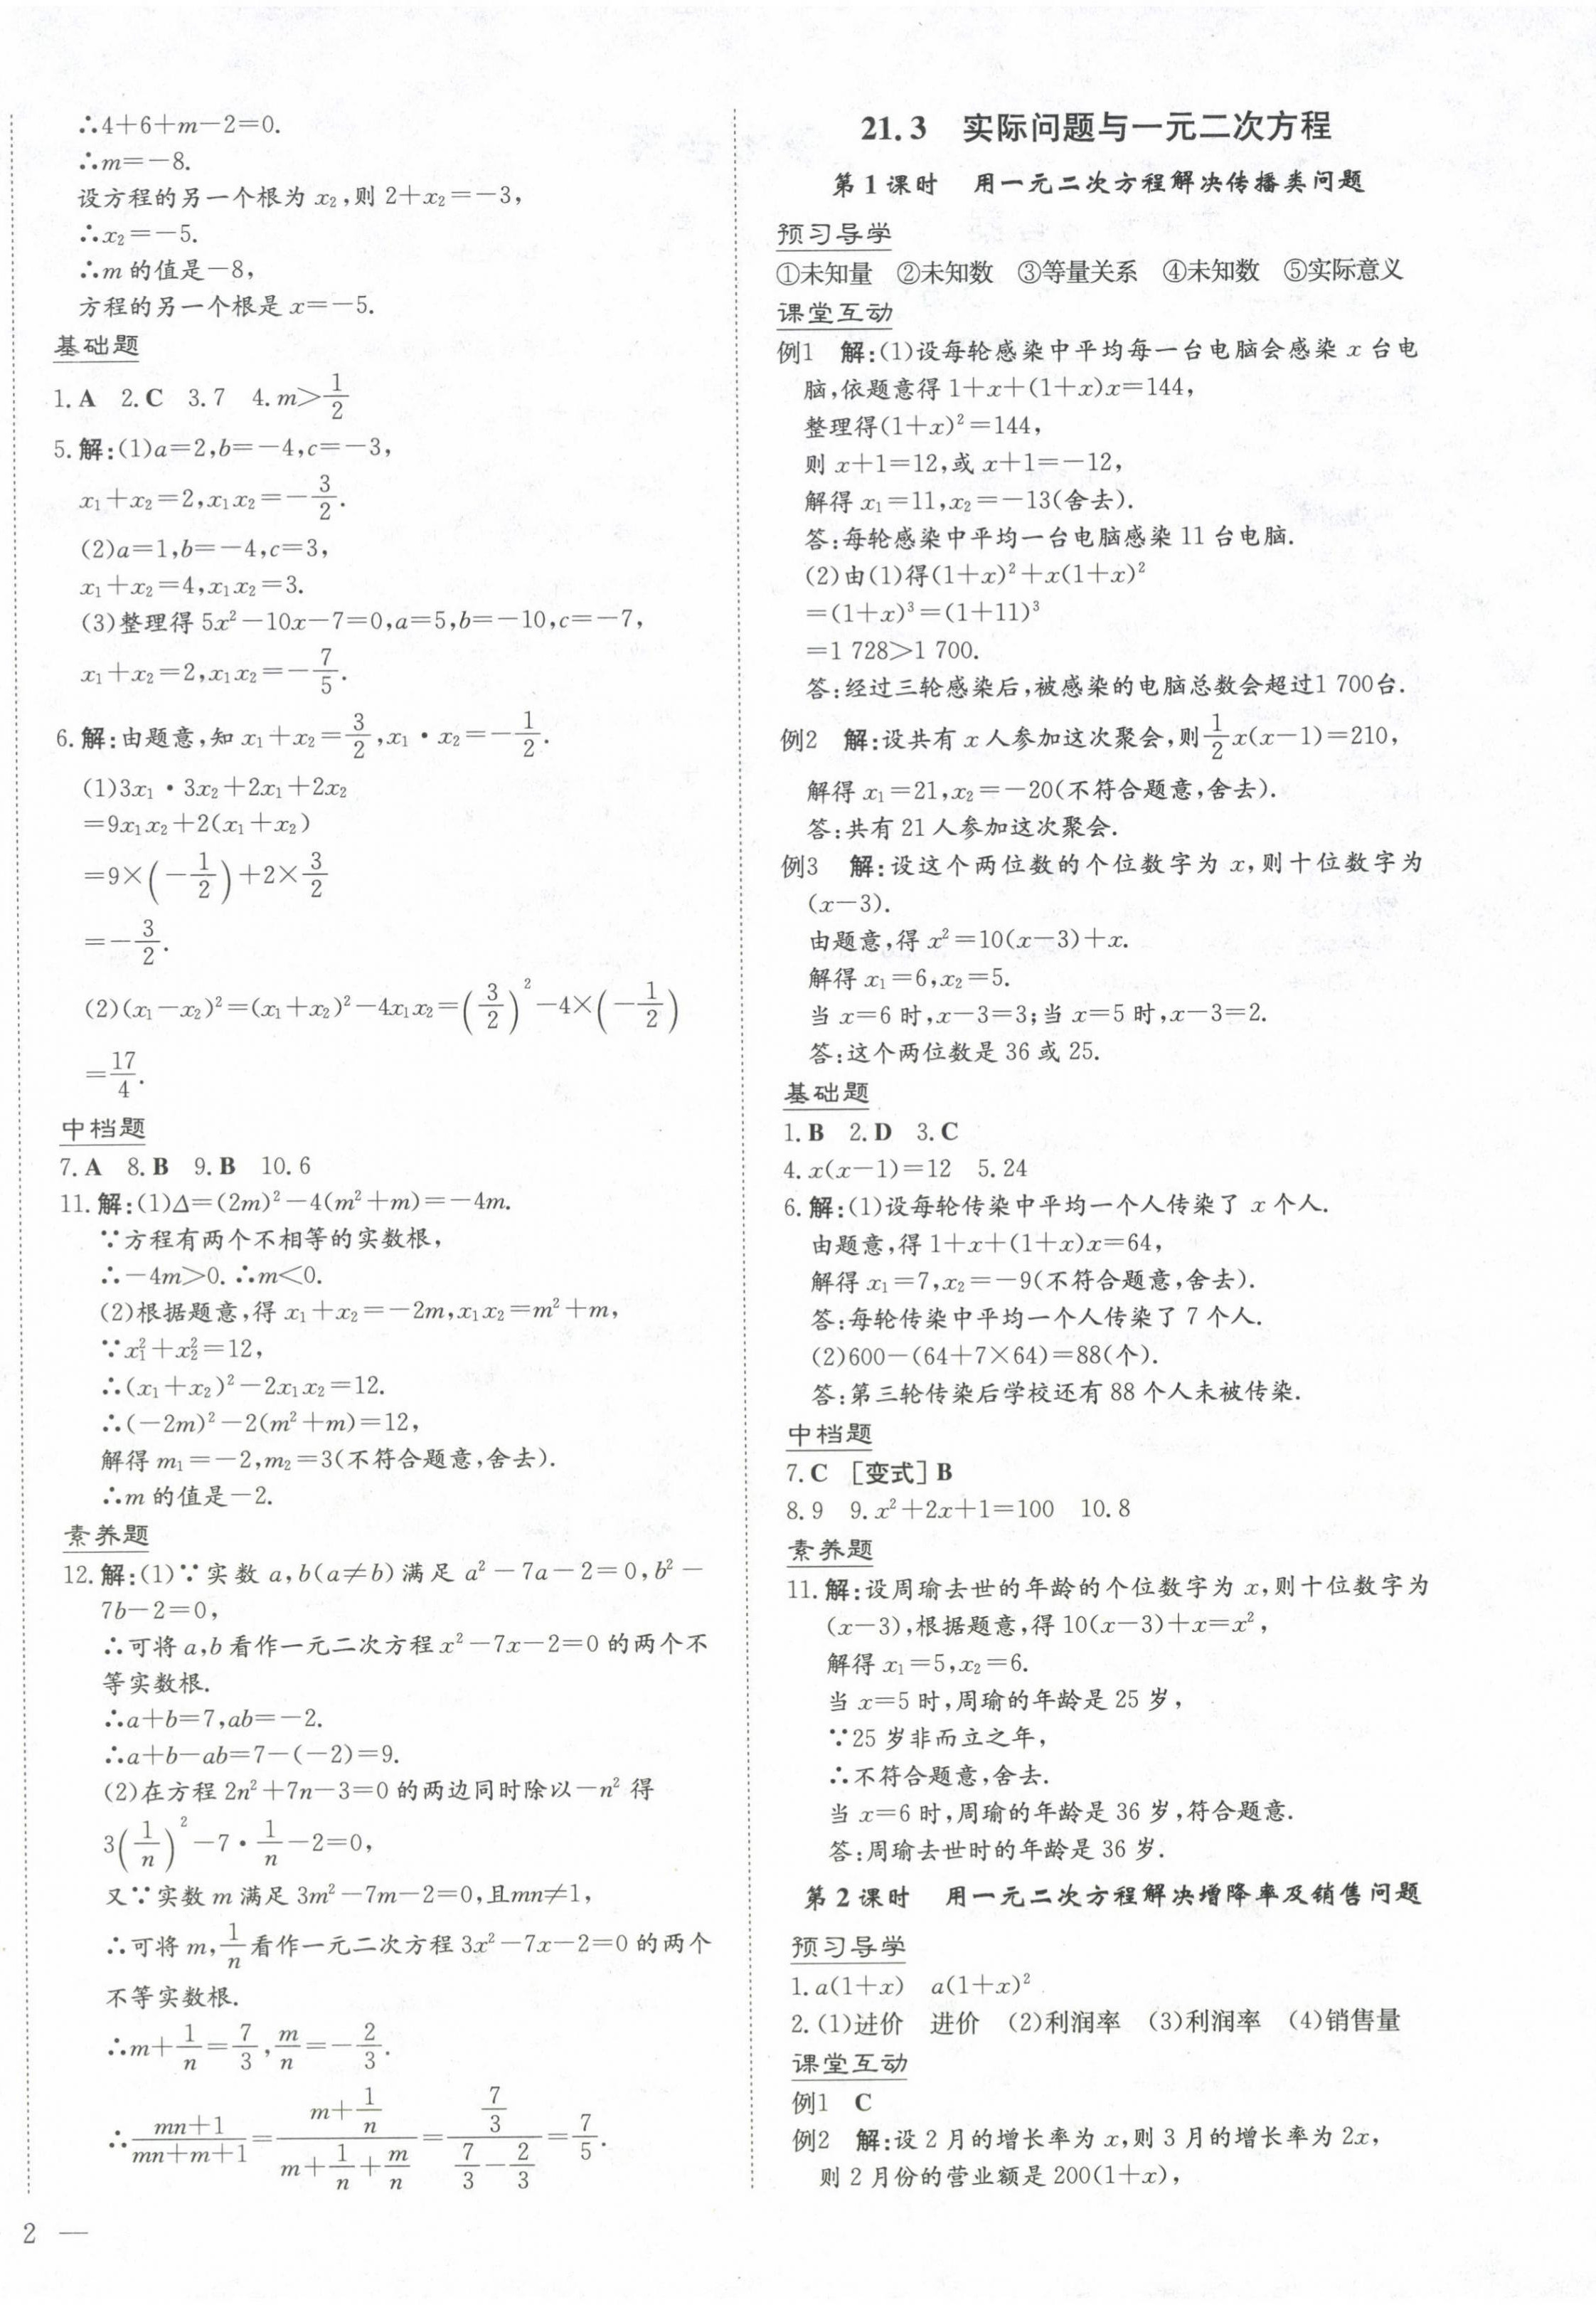 ∴4+6+m−2=0.
∴m=−8.
设方程的另一个根为 x₂,则 2+x₂=−3,
∴x₂=−5.
∴m 的值是−8,
方程的另一个根是 x=−5.
基础题
1. A 2. C 3. 7 4. m>1/2
5. 解:(1)a=2,b=−4,c=−3,
x₁+x₂=2,x₁x₂=−3/2.
(2)a=1,b=−4,c=3,
x₁+x₂=4,x₁x₂=3.
(3)整理得 5x²−10x−7=0,a=5,b=−10,c=−7,
x₁+x₂=2,x₁x₂=−7/5.
6. 解:由题意,知 x₁+x₂=3/2,x₁·x₂=−1/2.
(1)3x₁·3x₂+2x₁+2x₂
=9x₁x₂+2(x₁+x₂)
=9×(−1/2)+2×3/2
=−3/2.
(2)(x₁−x₂)²=(x₁+x₂)²−4x₁x₂=(3/2)²−4×(−1/2)
=17/4.
中档题
7. A 8. B 9. B 10. 6
11. 解:(1)Δ=(2m)²−4(m²+m)=−4m.
∵方程有两个不相等的实数根,
∴−4m>0. ∴m<0.
(2)根据题意,得 x₁+x₂=−2m,x₁x₂=m²+m,
∵x₁²+x₂²=12,
∴(x₁+x₂)²−2x₁x₂=12.
∴(−2m)²−2(m²+m)=12,
解得 m₁=−2,m₂=3(不符合题意,舍去).
∴m 的值是−2.
素养题
12. 解:(1)∵实数 a,b(a≠b)满足 a²−7a−2=0,b²−
7b−2=0,
∴可将 a,b 看作一元二次方程 x²−7x−2=0 的两个不
等实数根.
∴a+b=7,ab=−2.
∴a+b−ab=7−(−2)=9.
(2)在方程 2n²+7n−3=0 的两边同时除以−n² 得
3(1/n)²−7·1/n−2=0,
又∵实数 m 满足 3m²−7m−2=0,且mn≠1,
∴可将 m,1/n看作一元二次方程 3x²−7x−2=0 的两个
不等实数根.
∴m+1/n=7/3,m/n=−2/3.
∴(mn+1)/(mn+m+1)=(m+1/n)/(m+1/n+m/n)=(7/3)/(7/3−2/3)=7/5.
2 —
21.3 实际问题与一元二次方程
第 1 课时 用一元二次方程解决传播类问题
预习导学
①未知量 ②未知数 ③等量关系 ④未知数 ⑤实际意义
课堂互动
例1 解:(1)设每轮感染中平均每一台电脑会感染 x 台电
脑,依题意得 1+x+(1+x)x=144,
整理得(1+x)²=144,
则 x+1=12,或 x+1=−12,
解得 x₁=11,x₂=−13(舍去).
答:每轮感染中平均一台电脑感染 11 台电脑.
(2)由(1)得(1+x)²+x(1+x)²
=(1+x)³=(1+11)³
=1 728>1 700.
答:经过三轮感染后,被感染的电脑总数会超过1 700台.
例2 解:设共有 x 人参加这次聚会,则1/2x(x−1)=210,
解得 x₁=21,x₂=−20(不符合题意,舍去).
答:共有 21 人参加这次聚会.
例3 解:设这个两位数的个位数字为 x,则十位数字为
(x−3).
由题意,得 x²=10(x−3)+x.
解得 x₁=6,x₂=5.
当 x=6 时,x−3=3;当 x=5 时,x−3=2.
答:这个两位数是 36 或 25.
基础题
1. B 2. D 3. C
4. x(x−1)=12 5. 24
6. 解:(1)设每轮传染中平均一个人传染了 x 个人.
由题意,得 1+x+(1+x)x=64,
解得 x₁=7,x₂=−9(不符合题意,舍去).
答:每轮传染中平均一个人传染了 7 个人.
(2)600−(64+7×64)=88(个).
答:第三轮传染后学校还有 88 个人未被传染.
中档题
7. C [变式] B
8. 9 9. x²+2x+1=100 10. 8
素养题
11. 解:设周瑜去世的年龄的个位数字为 x,则十位数字为
(x−3),根据题意,得 10(x−3)+x=x²,
解得 x₁=5,x₂=6.
当 x=5 时,周瑜的年龄是 25 岁,
∵25 岁非而立之年,
∴不符合题意,舍去.
当 x=6 时,周瑜的年龄是 36 岁,符合题意.
答:周瑜去世时的年龄是 36 岁.
第 2 课时 用一元二次方程解决增降率及销售问题
预习导学
1. a(1+x) a(1+x)²
2. (1)进价 进价 (2)利润率 (3)利润率 (4)销售量
课堂互动
例1 C
例2 解:设 2 月的增长率为 x,则 3 月的增长率为 2x,
则 2 月份的营业额是 200(1+x),